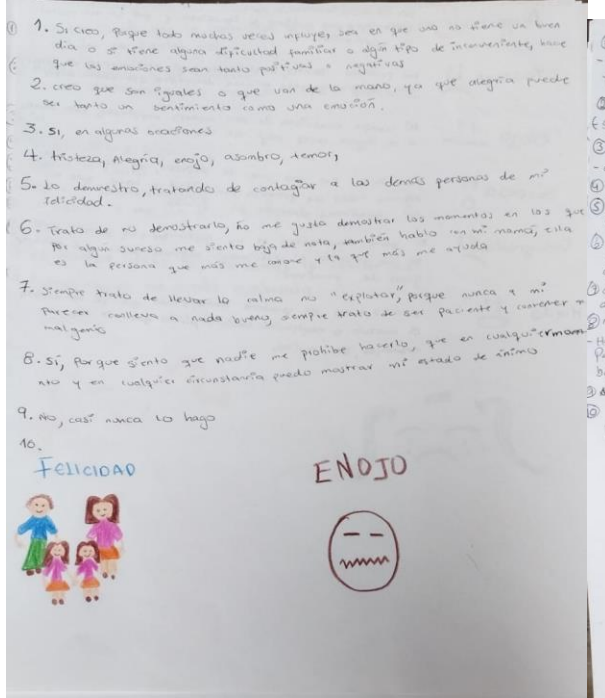 1. Si creo, porque todo muchas veces influye, sea en que uno no tiene un buen
dia o si tiene alguna dificultad familiar o algún tipo de inconveniente, hace
que las emociones sean tanto positivas o negativas
2. creo que son iguales o que van de la mano, ya que alegria puede
ser tanto un sentimiento como una emoción.
3. si, en algunas ocaciones
4. tristeza, Alegría, enojo, asombro, temor,
5. Lo demuestro, tratando de contagiar a las demás personas de mi
felicidad.
6. Trato de no demostrarlo, no me gusta demostrar los momentos en los que
por algun suceso me siento baja de nota, también hablo con mi mamá, ella
es la persona que más me conoce y la que más me ayuda
7. siempre trato de llevar la calma no "explotar", porque nunca a mi
parecer conlleva a nada bueno, siempre trato de ser paciente y contener
mal genio
8. Sí, porque siento que nadie me prohibe hacerlo, que en cualquier mom
nto y en cualquier circunstancia puedo mostrar mi estado de ánimo
9. No, casi nunca lo hago
10.
FELICIDAD
ENOJO